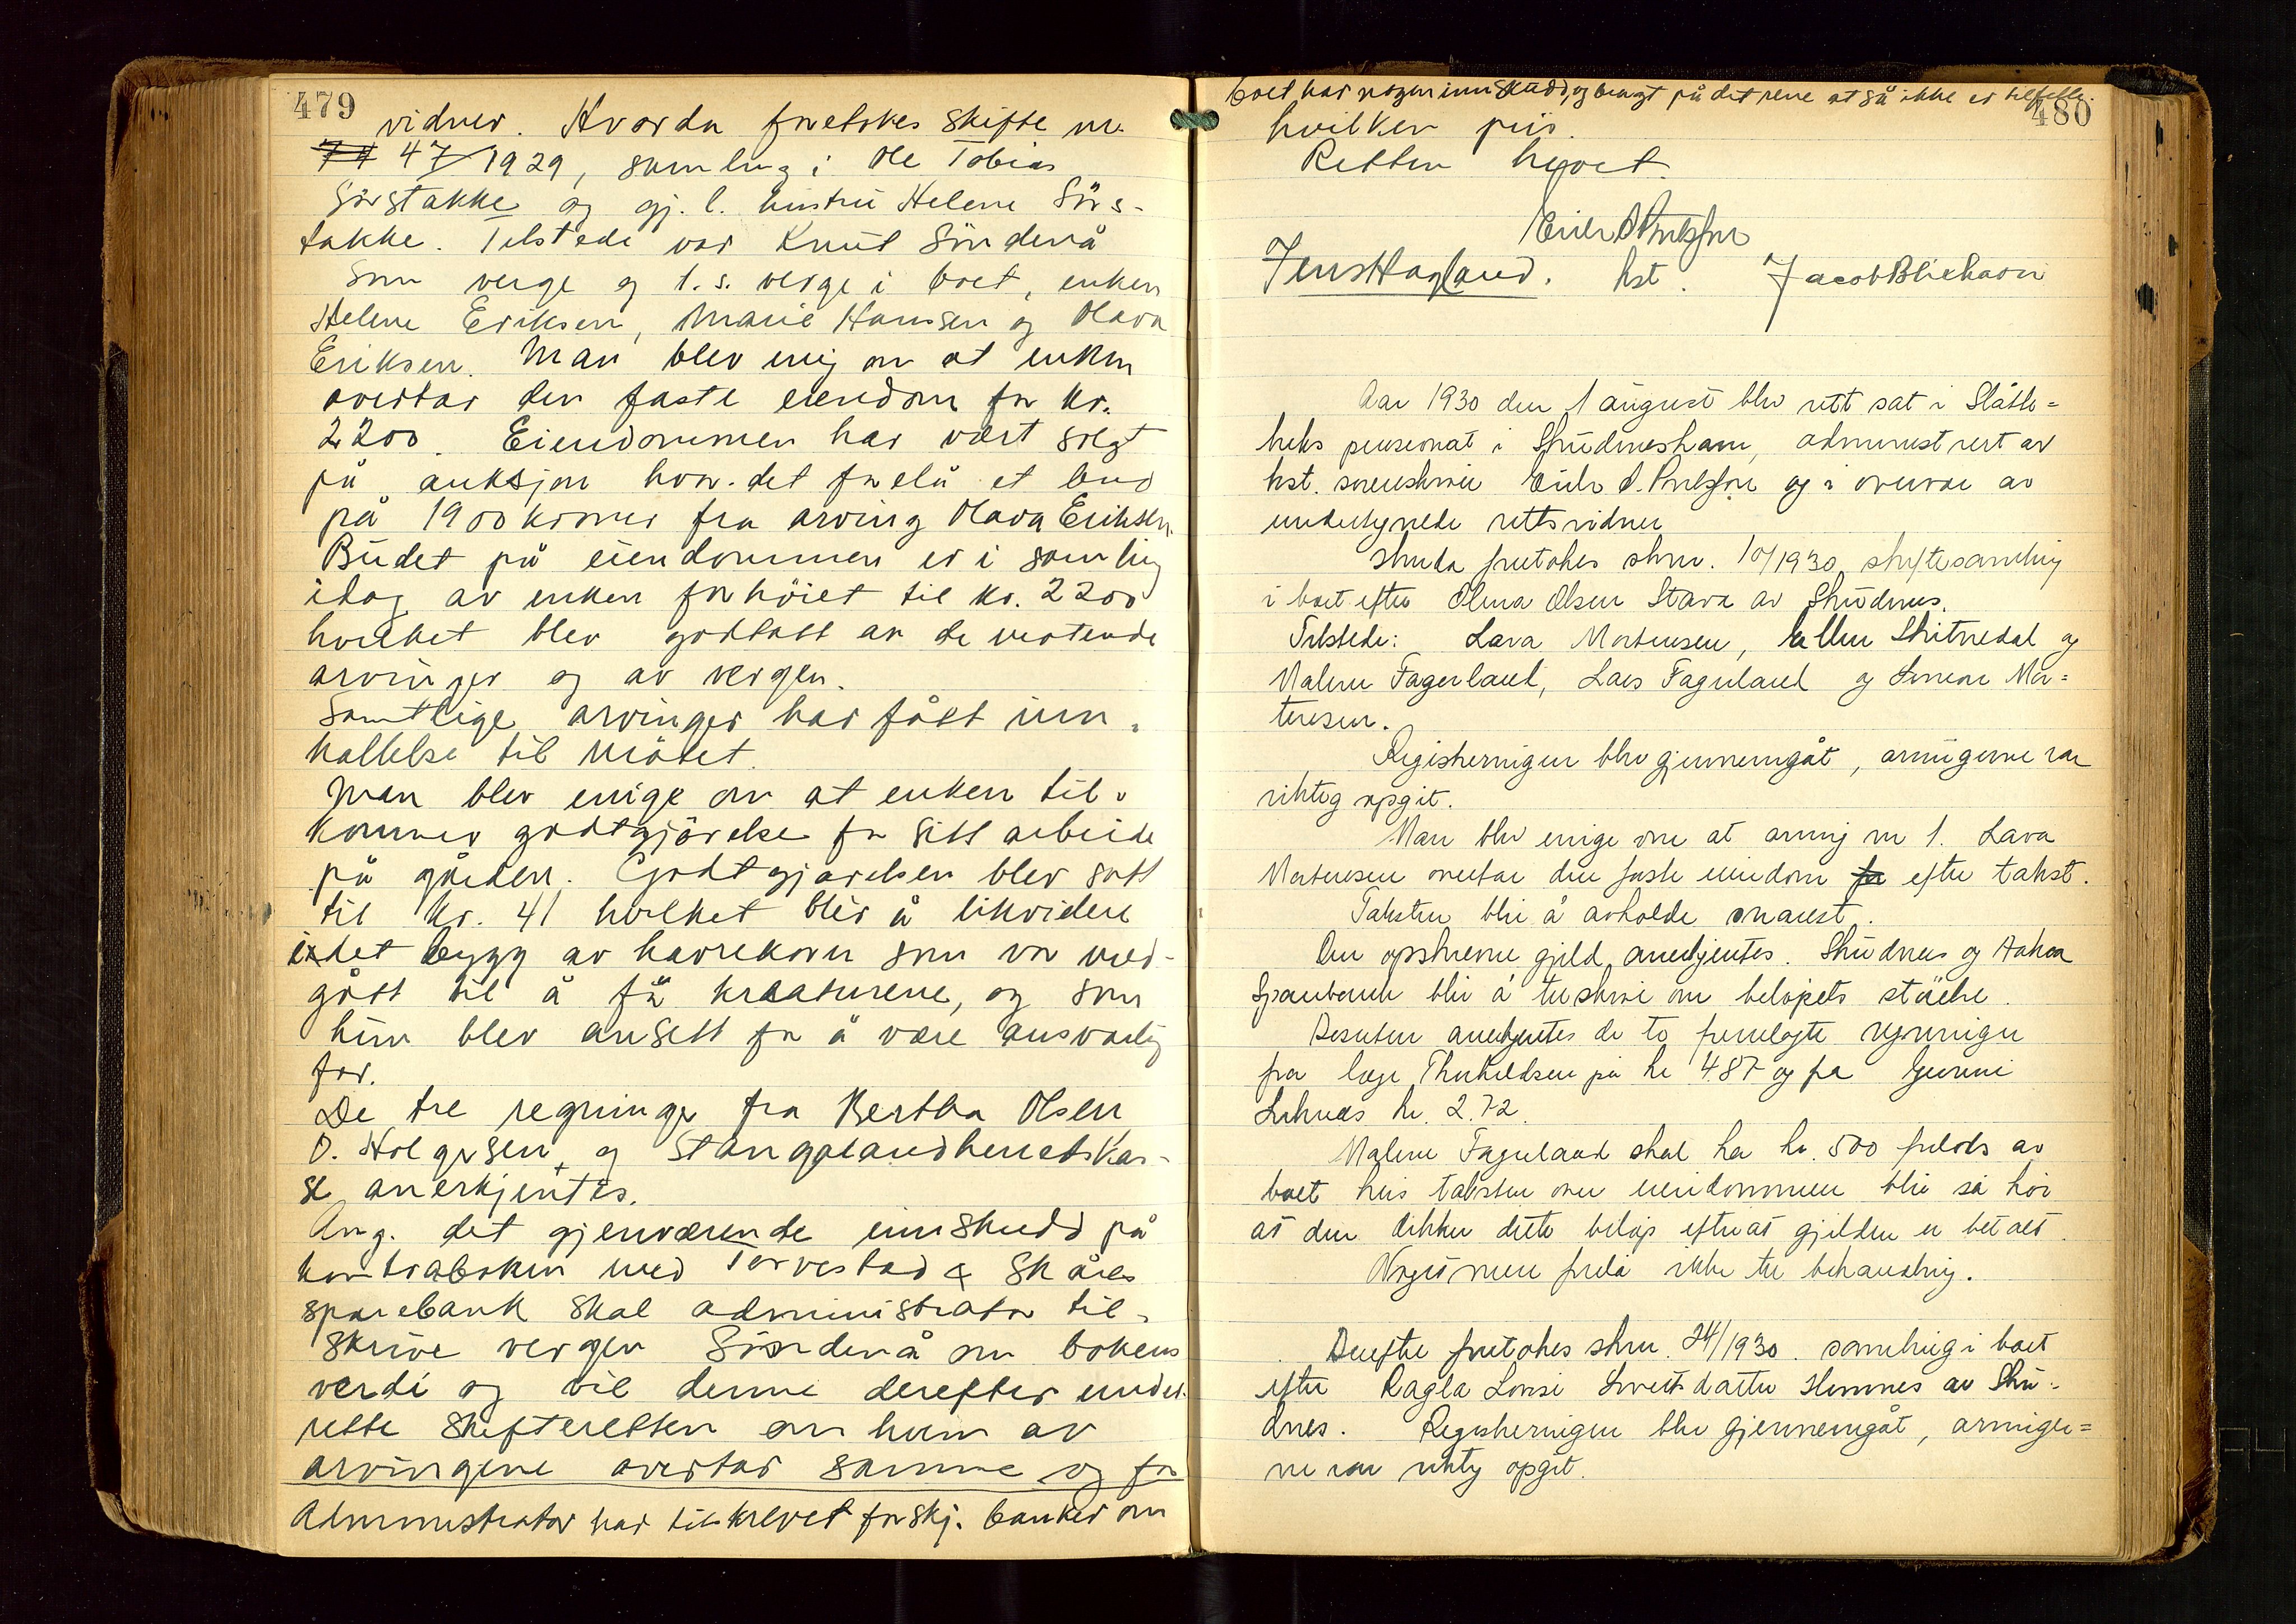 479
vidner. Hvorda foretokes skifte nr.
47/1929, samling i Ole Tobias
Sörstakke og gj. l. hustru Helene Sörs-
takke. Tilstede var Knut Söndenå
som verge og t. s. verge i boet, enken
Helene Eriksen, Marie Hansen og Olava
Eriksen. Man blev enig om at enken
overtar den faste eiendom for kr.
2200. Eiendommen har vært solgt
på auksjon hvor det forelå et bud
på 1900 kroner fra arving Olava Eriksen.
Budet på eiendommen er i samling
idag av enken forhöiet til kr. 2200
hvilket blev godtatt av de møtende
arvinger og av vergen.
Samtlige arvinger har fått inn-
kallelse til mötet.
Man blev enige om at enken til-
kommer godtgjörelse for sitt arbeide
på gården. Godtgjörelsen blev satt
til kr. 41 hvilket blir å likvidere
i det bygg av havrekorn som var med-
gått til å fø kreaturene, og som
hun blev ansett for å være ansvarlig
for.
De tre regninger fra Bertha Olsen
O. Holgersen og Stangelandherredskas-
se anerkjentes.
Ang. det gjenværende innskudd på
kontraboken med Torvestad & Skåres
sparebank skal administrator til-
skrive vergen Söndenå om bokens
verdi og vil denne derefter under-
rette skifteretten om hvem av
arvingene overtar samme og for
Administrator har tilskrevet forskj. banker om
480
boet har nogen innskudd, og bragt på det rene at så ikke er tilfelle.
hvilken pris.
Retten hevet.
Eirik
Jens Hagland. hst. Jacob Blikhavn
Aar 1930 den 1 august blev rett sat i Slåtte=
hets pensionat i Skudeneshavn, administrert av
hst. sorenskriver Eirik og i overvær av
undertegnede rettsvidner
Hvorda foretokes skrn. 10/1930, skiftesamling
i boet efter Olena Olsen Stava av Skudenes.
Tilstede: Lava Mortensen, Ellen Skitnedal og
Malene Fagerland, Lars Fagerland og Mor=
tensen.
Registreringen blev gjennemgåt, arvingerne var
riktig opgit.
Man blev enige om at arving nr 1. Lava
Mortensen overtar den faste eiendom for efter takst.
Taksten blir å avholde snarest.
Den opskrevne gjeld anerkjentes. Skudenes og Aakra
Sparebank blir å tilskrive om belöpets störrelse.
Desuten anerkjentes de to fremlagte regninger
fra læge Thorkildsen på kr 487 og fra
kr. 2.72.
Malene Fagerland skal ha kr. 500 forlods av
boet hvis taksten over eiendommen blir så höi
at den dekker dette belöp efterat gjelden er betalt.
Noget mere forelå ikke til behandling.
Derefter foretokes skrn. 24/1930. samling i boet
efter Ragla Lovise Sivertsdatter Hemnes av Sku-
denes. Registreringen blev gjennemgåt, arvinger=
ne var riktig opgit.